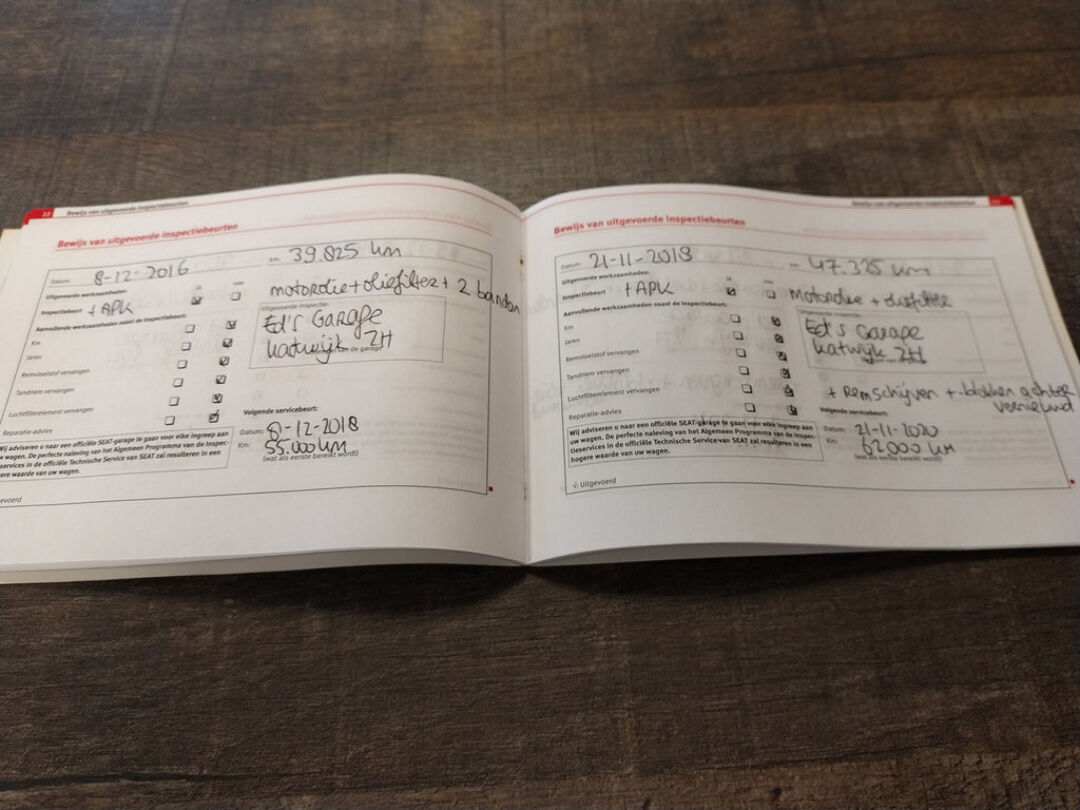 22 Bewijs van uitgevoerde inspectiebeurten
Bewijs van uitgevoerde inspectiebeurten
Datum: 8-12-2016 km: 39.825 km
Uitgevoerde werkzaamheden:
Inspectiebeurt + APK
motorolie + oliefilter + 2 banden
Aanvullende werkzaamheden naast de inspectiebeurt:
Km
Jaren
Remvloeistof vervangen
Tandriem vervangen
Luchtfilterelement vervangen
Reparatie-advies
Uitgevoerde inspectie:
Ed's Garage
Katwijk ZH
van de garage
Volgende servicebeurt:
Datum: 8-12-2018
Km: 55.000 km
(wat als eerste bereikt wordt)
Wij adviseren u naar een officiële SEAT-garage te gaan voor elke ingreep aan
uw wagen. De perfecte naleving van het Algemeen Programma van de Inspec-
tieservices in de officiële Technische Service van SEAT zal resulteren in een
hogere waarde van uw wagen.
gevoerd
Bewijs van uitgevoerde inspectiebeurten
Bewijs van uitgevoerde inspectiebeurten
Datum: 21-11-2018 km: 47.325 km
Uitgevoerde werkzaamheden:
Inspectiebeurt + APK
motorolie + oliefilter
Aanvullende werkzaamheden naast de inspectiebeurt:
Km
Jaren
Remvloeistof vervangen
Tandriem vervangen
Luchtfilterelement vervangen
Reparatie-advies
Uitgevoerde inspectie:
Ed's Garage
Katwijk ZH
+ Remschijven + -blokken achter
vernieuwd
Volgende servicebeurt:
Datum: 21-11-2020
Km: 62000 km
(wat als eerste bereikt wordt)
Wij adviseren u naar een officiële SEAT-garage te gaan voor elke ingreep aan
uw wagen. De perfecte naleving van het Algemeen Programma van de Inspec-
tieservices in de officiële Technische Service van SEAT zal resulteren in een
hogere waarde van uw wagen.
√: Uitgevoerd